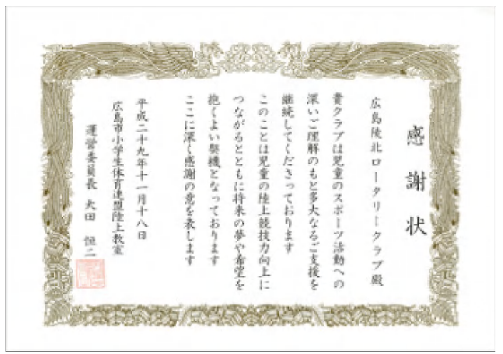 感謝状
広島陵北ロータリークラブ殿
貴クラブは児童のスポーツ活動への
深いご理解のもと多大なるご支援を
継続してくださっております
このことは児童の陸上競技力向上に
つながるとともに将来の夢や希望を
抱くよい契機となっております
ここに深く感謝の意を表します
平成二十九年十一月十八日
広島市小学生体育連盟陸上教室
運営委員長 大田 恒二